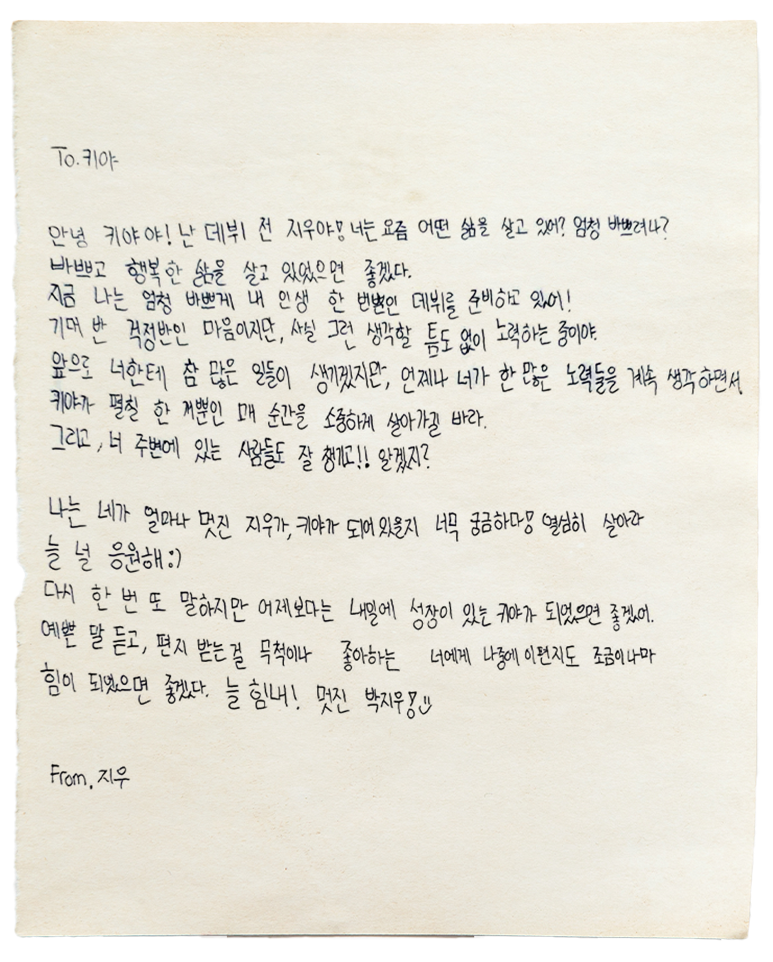 To. 키야
안녕 키야야! 난 데뷔 전 지우야! 너는 요즘 어떤 삶을 살고 있어? 엄청 바쁘려나?
바쁘고 행복한 삶을 살고 있었으면 좋겠다.
지금 나는 엄청 바쁘게 내 인생 한 번뿐인 데뷔를 준비하고 있어!
기대 반 걱정반인 마음이지만, 사실 그런 생각할 틈도 없이 노력하는 중이야.
앞으로 너한테 참 많은 일들이 생기겠지만, 언제나 너가 한 많은 노력들을 계속 생각하면서
키야가 펼칠 한 번뿐인 매 순간을 소중하게 살아가길 바라.
그리고, 너 주변에 있는 사람들도 잘 챙기고!! 알겠지?
나는 네가 얼마나 멋진 지우가, 키야가 되어있을지 너무 궁금하다! 열심히 살아라
늘 널 응원해:)
다시 한 번 또 말하지만 어제보다는 내일에 성장이 있는 키야가 되었으면 좋겠어.
예쁜 말 듣고, 편지 받는걸 무척이나 좋아하는 너에게 나중에 이편지도 조금이나마
힘이 되었으면 좋겠다. 늘 힘내! 멋진 박지우!
From. 지우